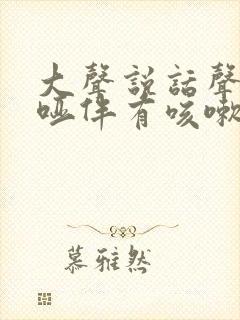 大聲説話聲
啞伴有咳嗽
慕雅然